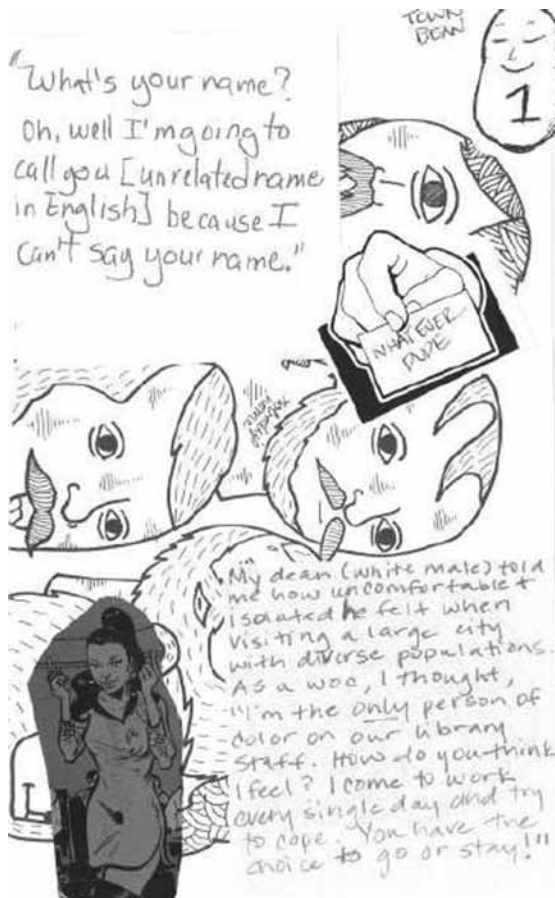 TOWN
BEAN
1
"What's your name?
Oh, well I'm going to
call you [unrelated name
in English] because I
can't say your name."
WHATEVER
DUDE
My dean (white male) told
me how uncomfortable +
isolated he felt when
visiting a large city
with diverse populations.
As a woc, I thought,
"I'm the only person of
color on our library
staff. How do you think
I feel? I come to work
every single day and try
to cope. You have the
choice to go or stay!"